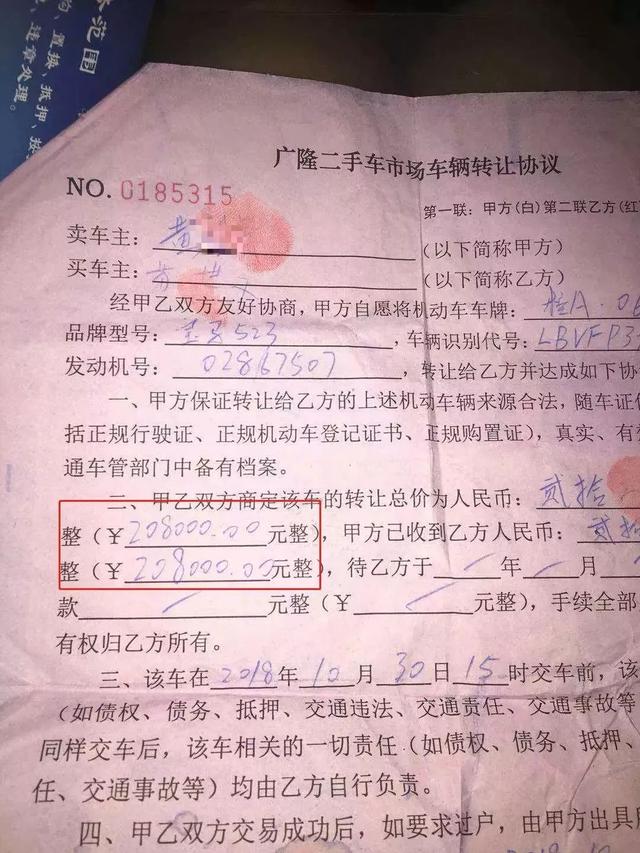 范围
置换、抵押、
违章处理。
广隆二手车市场车辆转让协议
NO. 0185315
第一联：甲方(白)第二联乙方(红
卖车主：黄 (以下简称甲方)
买车主： (以下简称乙方)
经甲乙双方友好协商，甲方自愿将机动车车牌：桂A·0
品牌型号：宝马523，车辆识别代号：LBVFP3
发动机号：02867507，转让给乙方并达成如下协
一、甲方保证转让给乙方的上述机动车辆来源合法，随车证
括正规行驶证、正规机动车登记证书、正规购置证)，真实、有
通车管部门中备有档案。
二、甲乙双方商定该车的转让总价为人民币：贰拾
整(￥208000.00元整)，甲方已收到乙方人民币：贰拾
整(￥208000.00元整)，待乙方于/年/月
款/元整(￥/元整)，手续全部
有权归乙方所有。
三、该车在2018年10月30日15时交车前，该
(如债权、债务、抵押、交通违法、交通责任、交通事故等
同样交车后，该车相关的一切责任(如债权、债务、抵押、
任、交通事故等)均由乙方自行负责。
四、甲乙双方交易成功后，如要求过户，由甲方出具